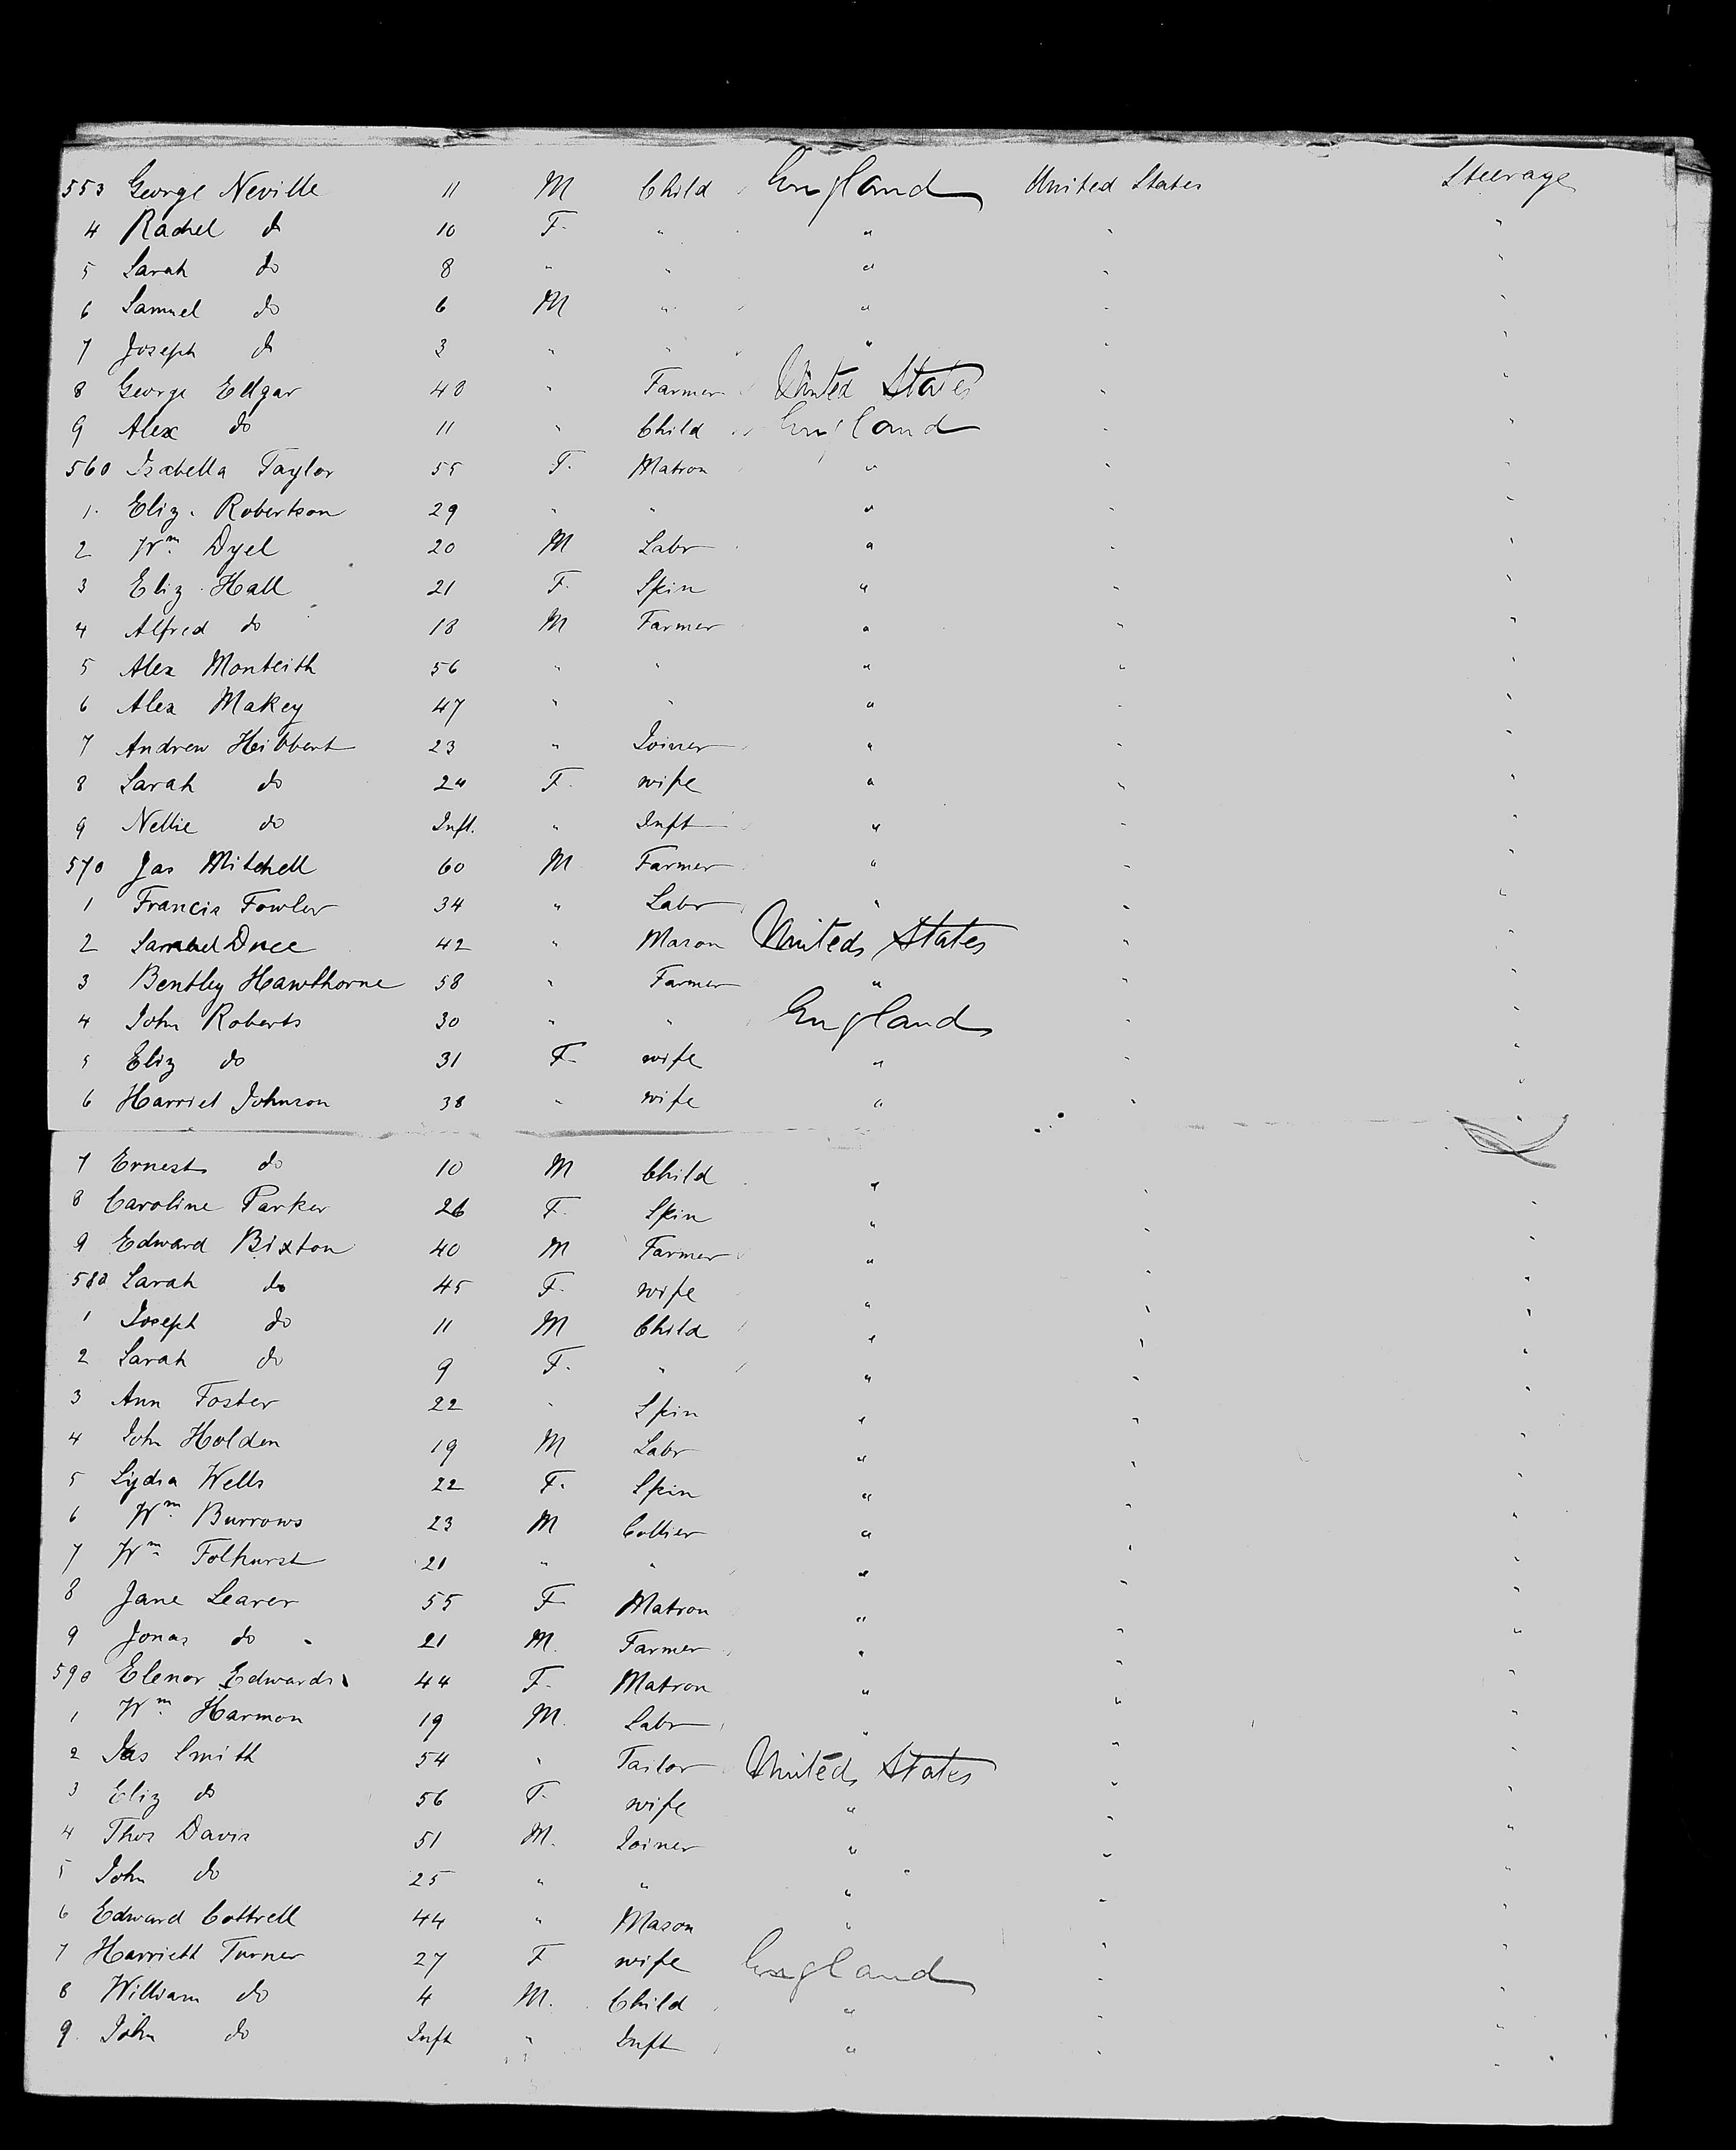 553 George Neville 11 M Child England United States Steerage
4 Rachel do 10 F. " " " "
5 Sarah do 8 " " " " "
6 Samuel do 6 M " " " "
7 Joseph do 3 " " " " "
8 George Edgar 40 " Farmer United States " "
9 Alex do 11 " Child England " "
560 Isabella Taylor 55 F. Matron " " "
1. Eliz. Robertson 29 " " " " "
2 Wm. Dyel 20 M Labr " " "
3 Eliz. Hall 21 F. Spin " " "
4 Alfred do 18 M Farmer " " "
5 Alex Monteith 56 " " " " "
6 Alex Makey 47 " " " " "
7 Andrew Hibbert 23 " Joiner " " "
8 Sarah do 24 F. wife " " "
9 Nellie do Inft. " Inft " " "
570 Jas Mitchell 60 M Farmer " " "
1 Francis Fowler 34 " Labr " " "
2 Samuel 42 " Mason United States " "
3 Bentley Hawthorne 58 " Farmer " " "
4 John Roberts 30 " " England " "
5 Eliz do 31 F wife " " "
6 Harriet Johnson 38 " wife " " "
7 Ernest do 10 M Child " " "
8 Caroline Parker 26 F. Spin " " "
9 Edward Bixton 40 M Farmer " " "
580 Sarah do 45 F. wife " " "
1 Joseph do 11 M Child " " "
2 Sarah do 9 F. " " " "
3 Ann Foster 22 " Spin " " "
4 John Holden 19 M Labr " " "
5 Lydia Wells 22 F. Spin " " "
6 Wm. Burrows 23 M Collier " " "
7 Wm Folhurst 21 " " " " "
8 Jane Learer 55 F Matron " " "
9 Jonas do 21 M. Farmer " " "
590 Elenor Edwards 44 F. Matron " " "
1 Wm. Harmon 19 M. Labr " " "
2 Jas Smith 54 " Tailor United States " "
3 Eliz do 56 F. wife " " "
4 Thos Davis 51 M. Joiner " " "
5 John do 25 " " " " "
6 Edward Cottrell 44 " Mason " " "
7 Harriett Turner 27 F wife England " "
8 William do 4 M. Child " " "
9. John do Inft " Inft " " "